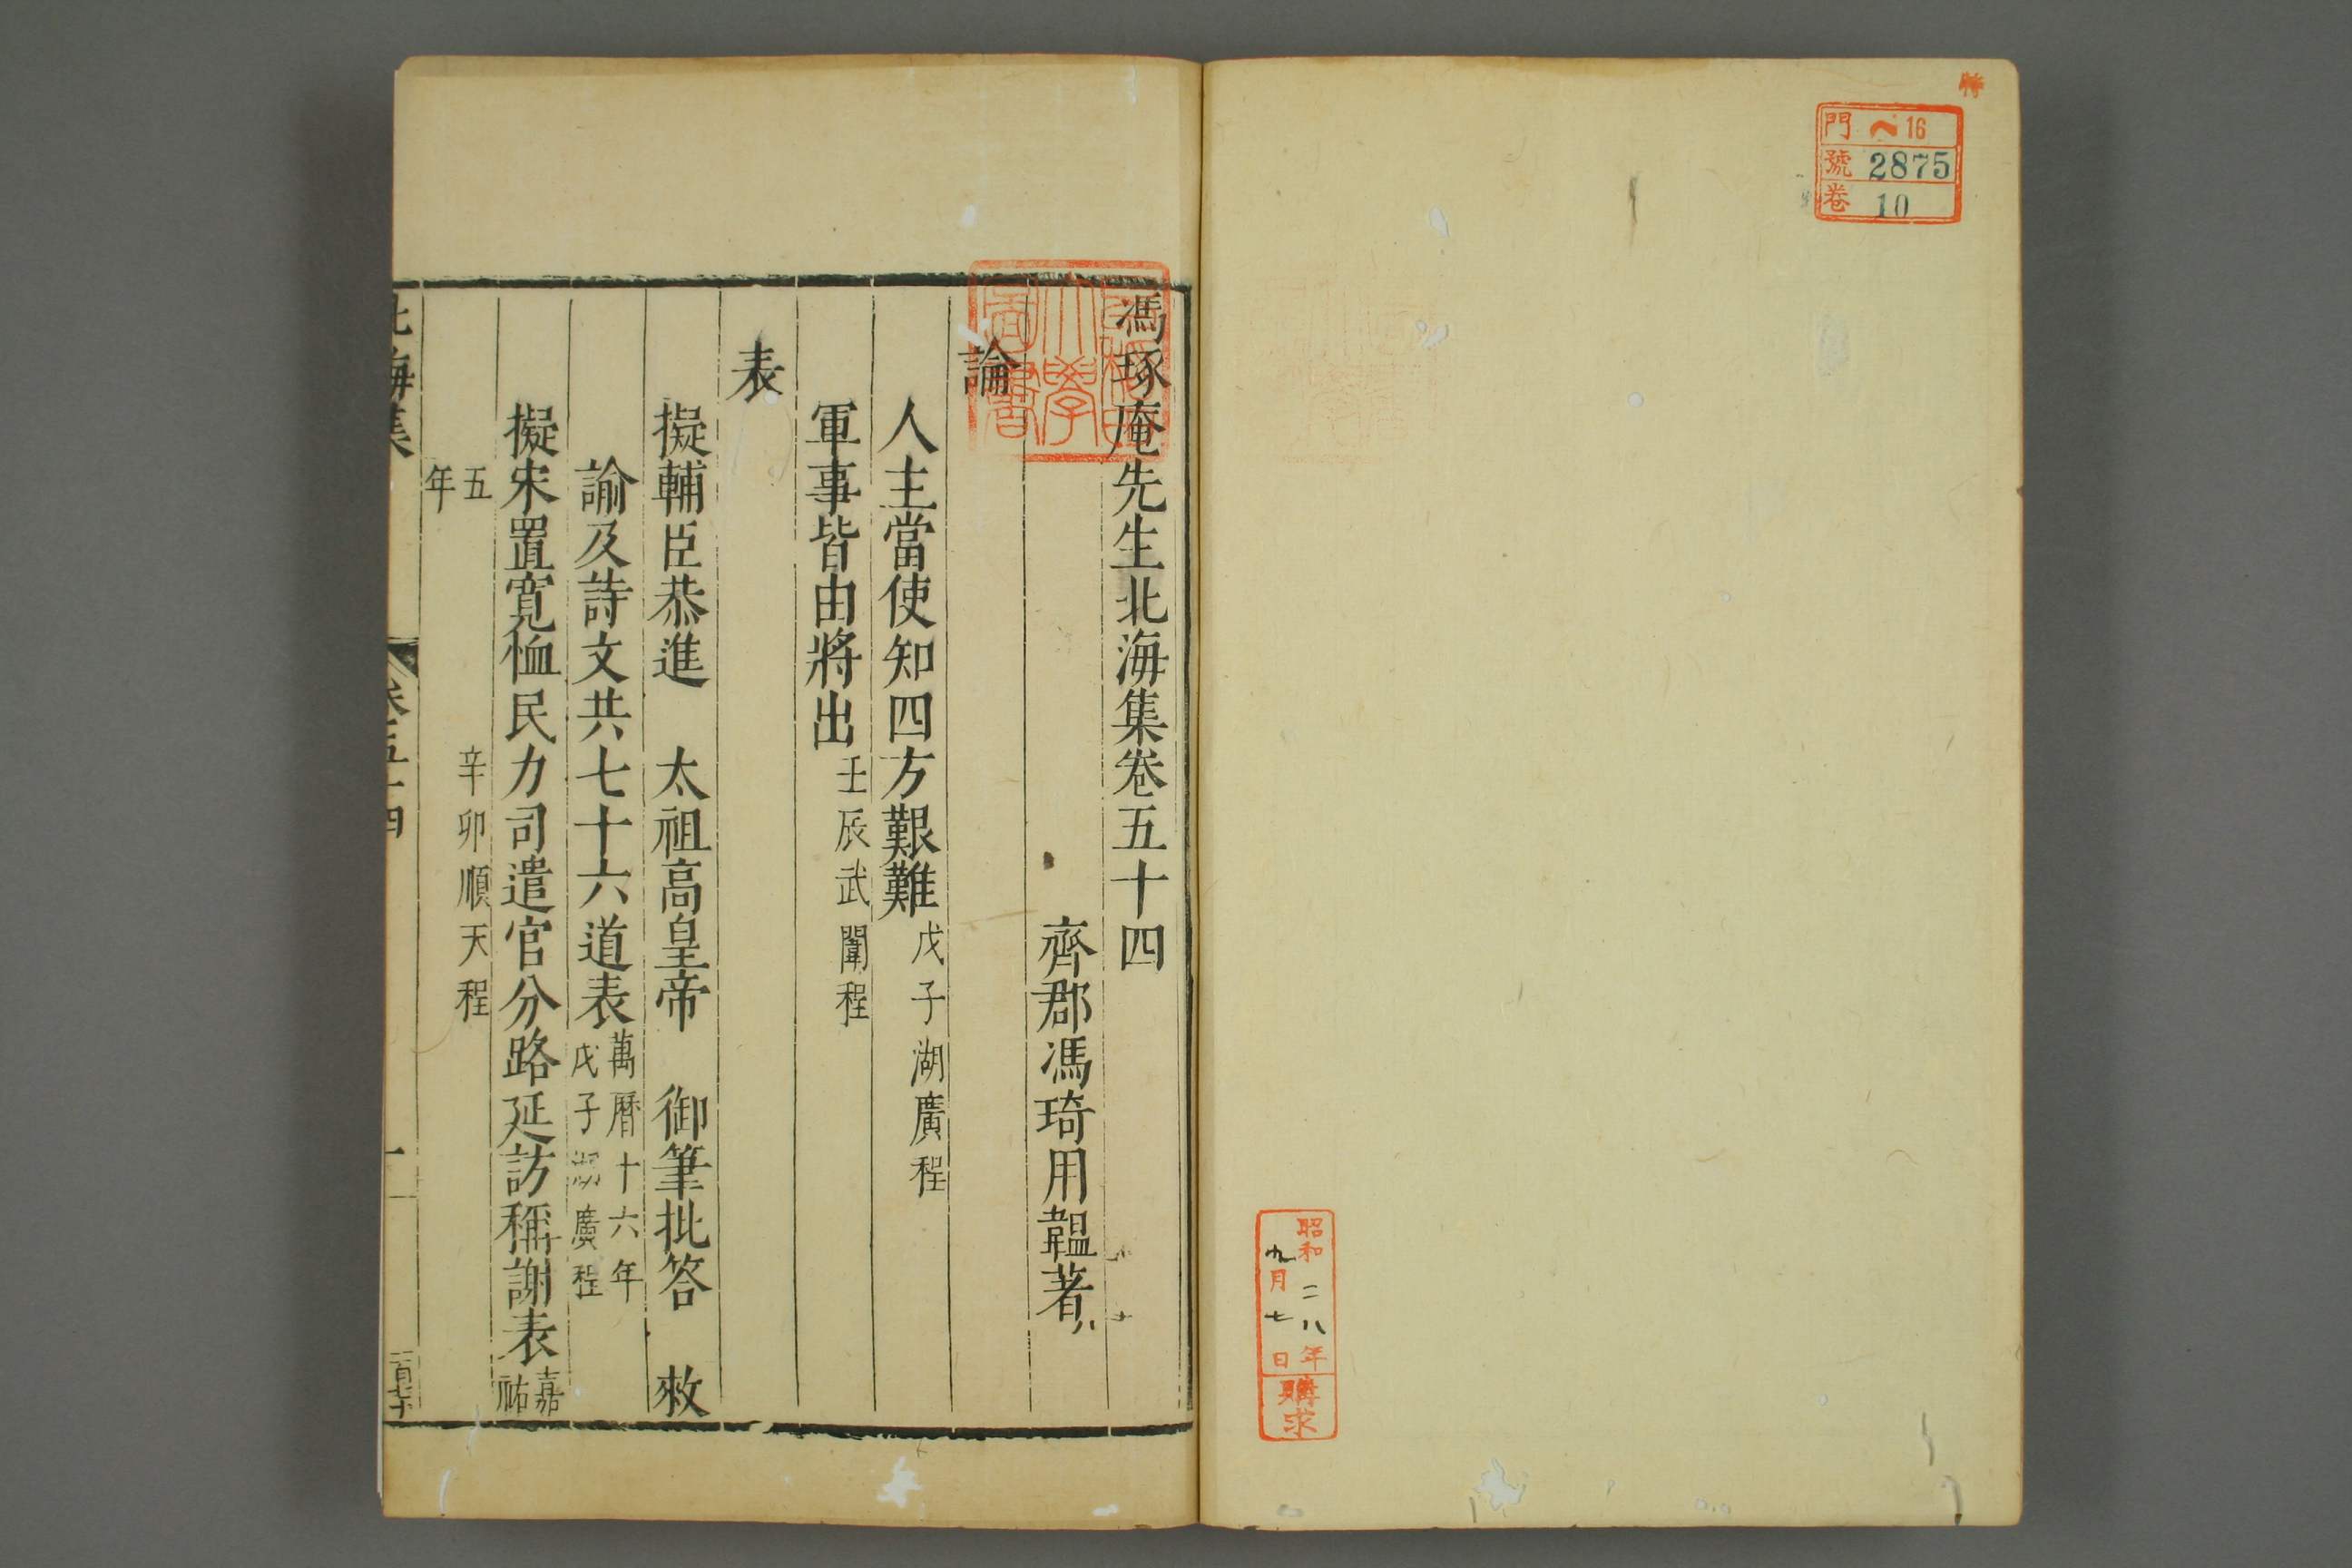 特
門 へ16
號 2875
卷 10
昭和二八年
九月七日
購求
馮琢庵先生北海集卷五十四
齊郡馮琦用韞著
論
人主當使知四方艱難戊子湖廣程
軍事皆由將出壬辰武闈程
表
擬輔臣恭進 太祖高皇帝 御筆批答 敕
諭及詩文共七十六道表萬曆十六年戊子湖廣程
擬宋置寬恤民力司遣官分路延訪稱謝表嘉祐
五年 辛卯順天程
北海集 卷五十四 一